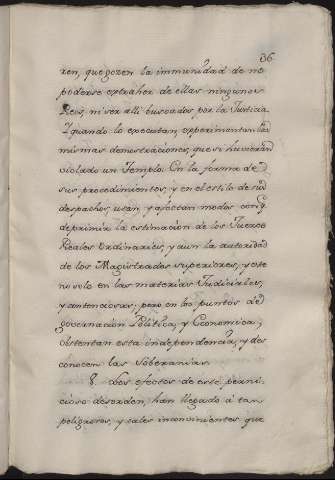 36
ren, que gozen la immunidad de no
poderse extraher de ellas ningunos
Reos, ni ser alli buscados por la Justicia
Y quando lo executan, experimentan las
mismas demostraciones, que si huvieran
violado un Templo. En la forma de
sus procedimientos, y en el estilo de sus
despachos, usan, y afectan modos con q.
deprimir la estimacion de los Juezes
Reales Ordinarios, y aun la autoridad
de los Magistrados superiores; y este
no solo en las materias Judiciales,
y contenciosas; pero en los puntos de
governacion Politica, y Economica;
obstentan esta independencia, y des
conocen las Soberanias.
8. Los efectos de este perni-
cioso desorden, han llegado á tan
peligrosos, y tales inconvenientes que